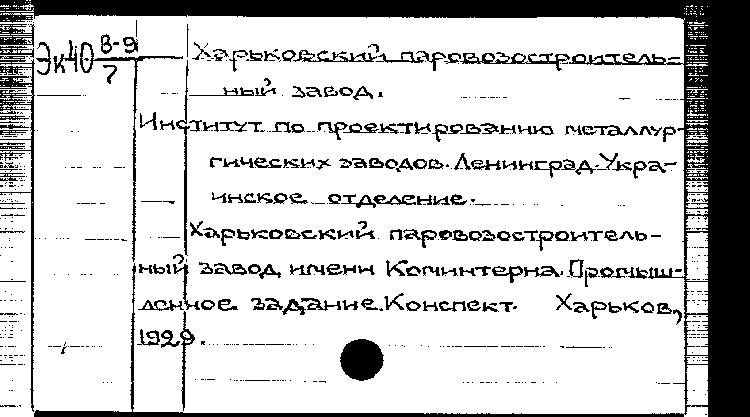 Эк40 8-9/7
Харьковский паровозостроитель=
ный завод.
Институт по проектированию металлур-
гических заводов. Ленинград. Укра-
инское отделение.
Харьковский паровозостроитель-
ный завод имени Коминтерна. Промыш-
ленное задание. Конспект. Харьков,
1929.